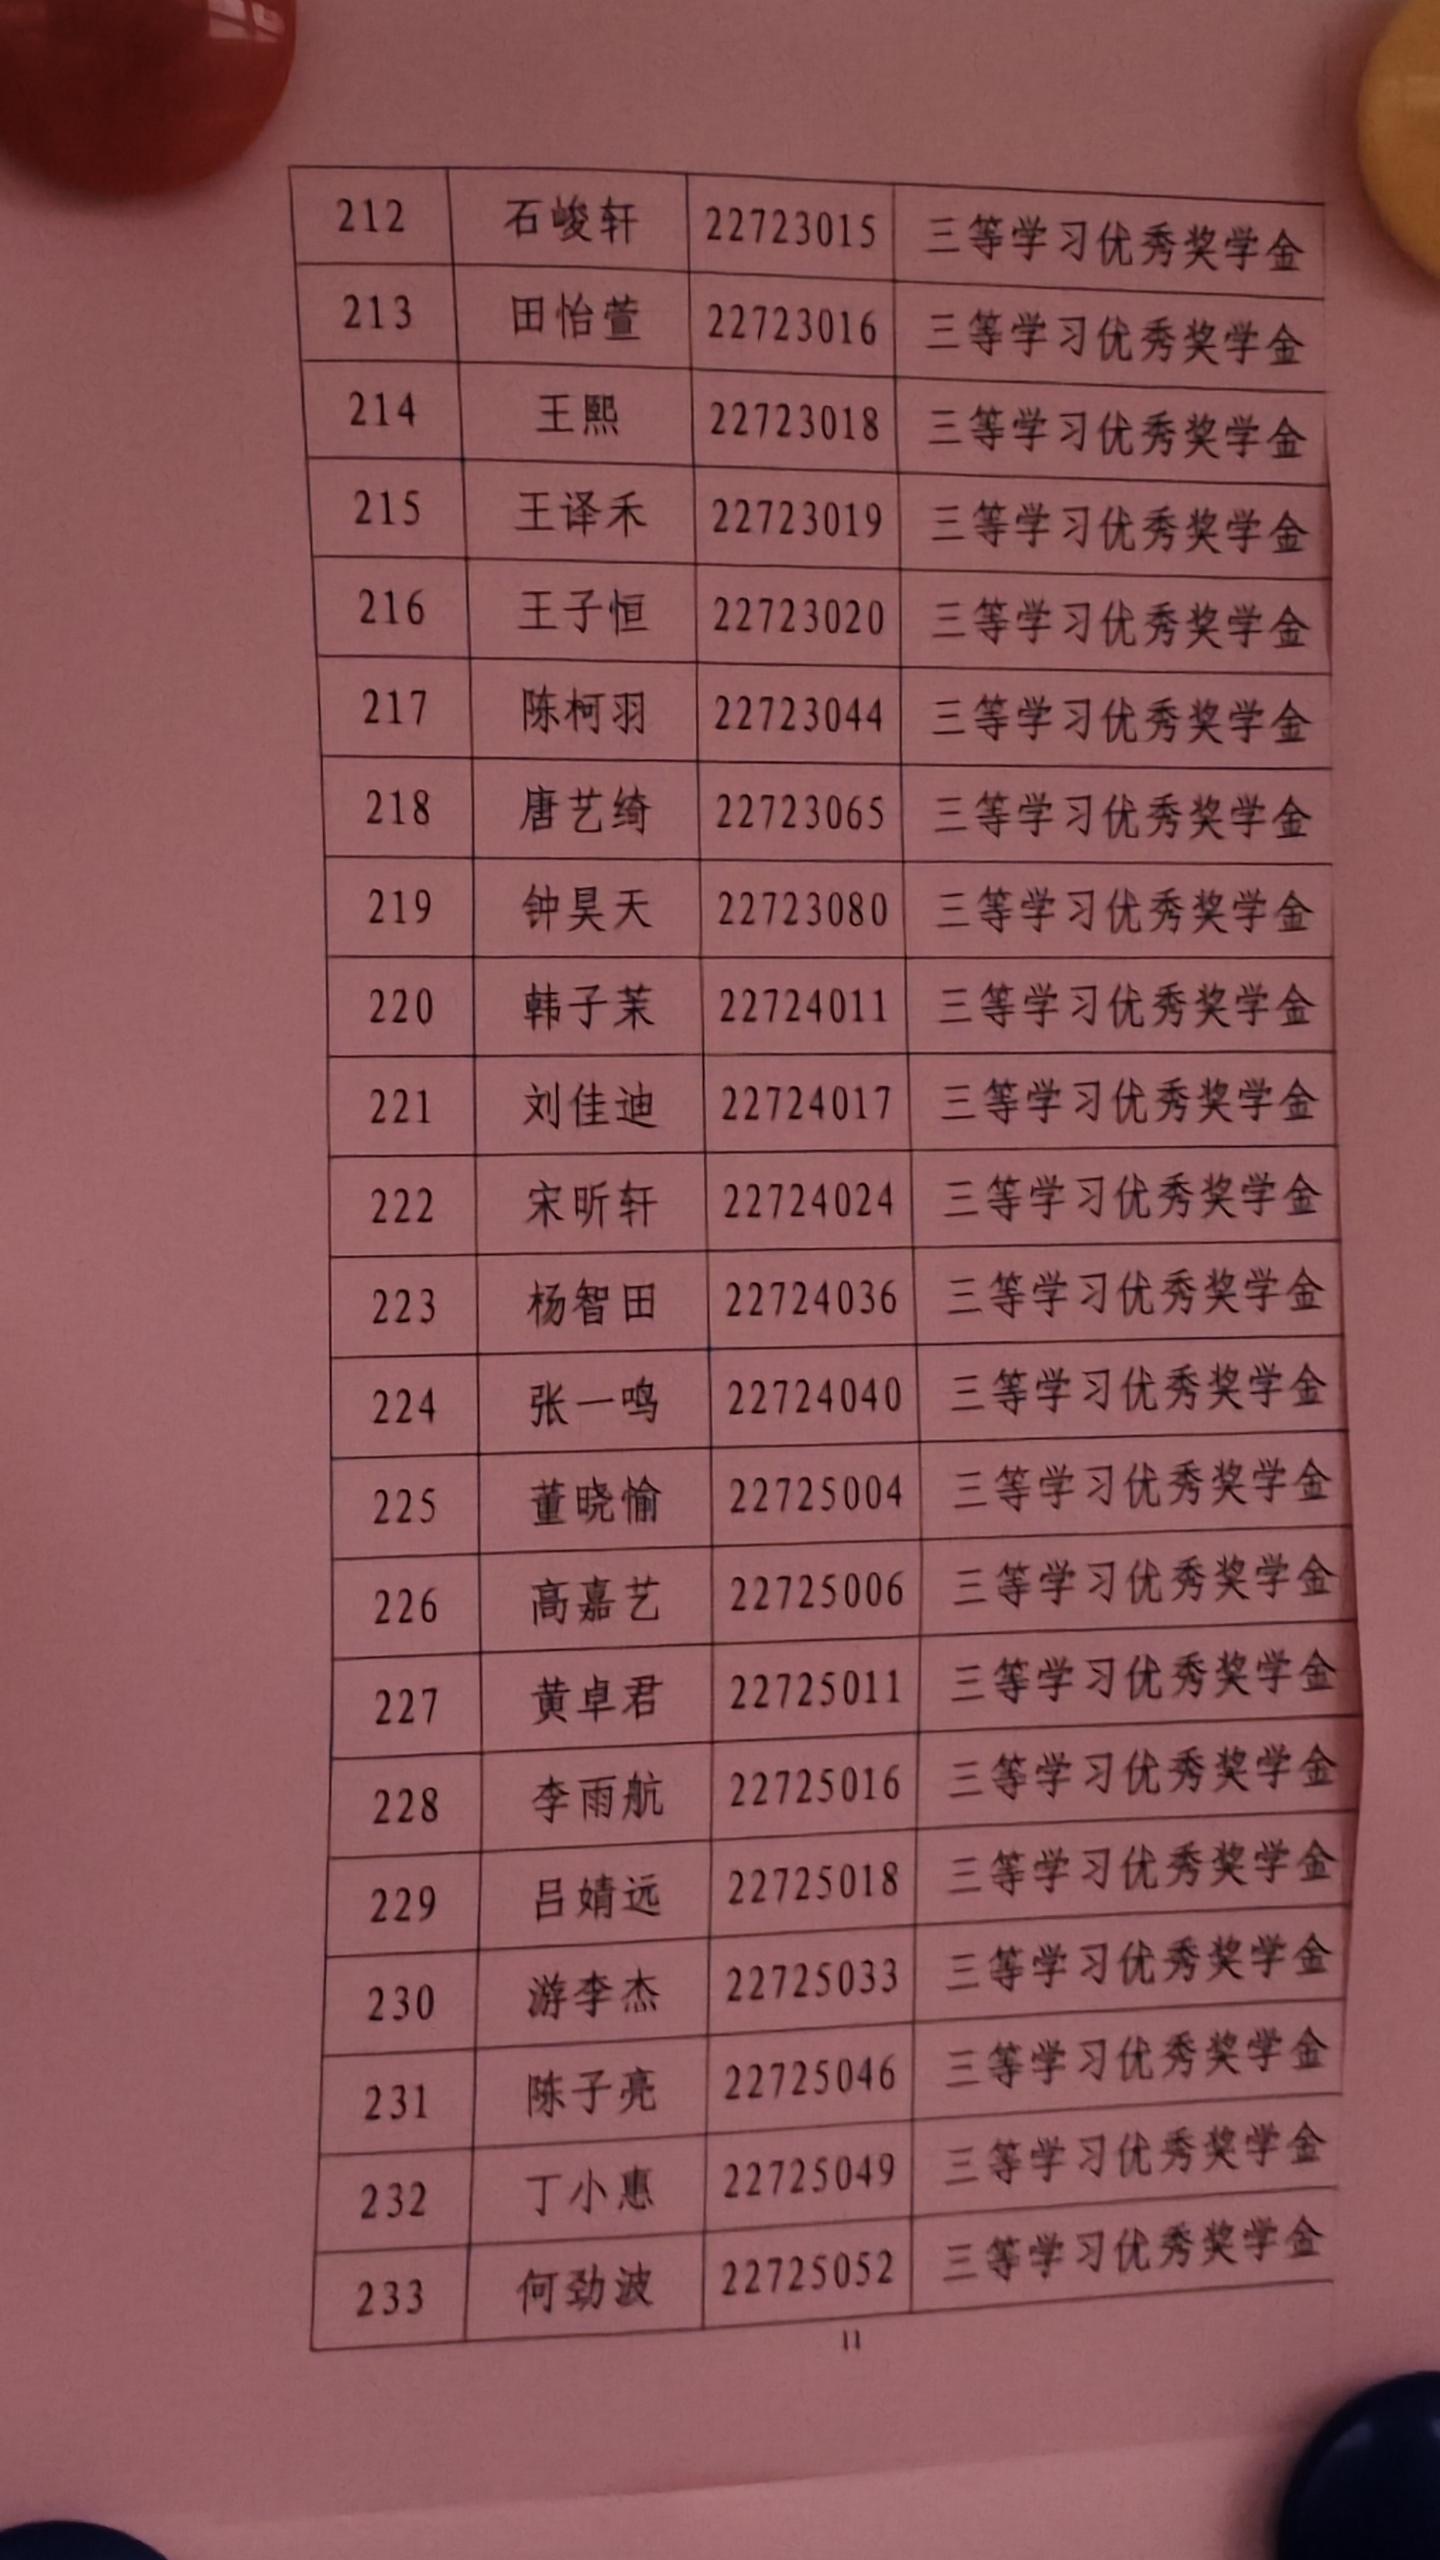 212 石峻轩 22723015 三等学习优秀奖学金
213 田怡萱 22723016 三等学习优秀奖学金
214 王熙 22723018 三等学习优秀奖学金
215 王译禾 22723019 三等学习优秀奖学金
216 王子恒 22723020 三等学习优秀奖学金
217 陈柯羽 22723044 三等学习优秀奖学金
218 唐艺绮 22723065 三等学习优秀奖学金
219 钟昊天 22723080 三等学习优秀奖学金
220 韩子茉 22724011 三等学习优秀奖学金
221 刘佳迪 22724017 三等学习优秀奖学金
222 宋昕轩 22724024 三等学习优秀奖学金
223 杨智田 22724036 三等学习优秀奖学金
224 张一鸣 22724040 三等学习优秀奖学金
225 董晓愉 22725004 三等学习优秀奖学金
226 高嘉艺 22725006 三等学习优秀奖学金
227 黄卓君 22725011 三等学习优秀奖学金
228 李雨航 22725016 三等学习优秀奖学金
229 吕婧远 22725018 三等学习优秀奖学金
230 游李杰 22725033 三等学习优秀奖学金
231 陈子亮 22725046 三等学习优秀奖学金
232 丁小惠 22725049 三等学习优秀奖学金
233 何劲波 22725052 三等学习优秀奖学金
11